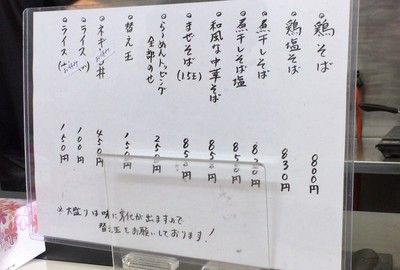 ・鶏そば 800円
・鶏塩そば 830円
・煮干しそば 820円
・煮干しそば塩 850円
・和風な中華そば 850円
・まぜそば(1.5玉) 850円
・らーめんトッピング全部のせ 250円
・替え玉 150円
・ネギ丼 450円
・ライス 100円
・ライス 150円
※大盛りは味に変化が出ますので
替え玉でお願いしております!